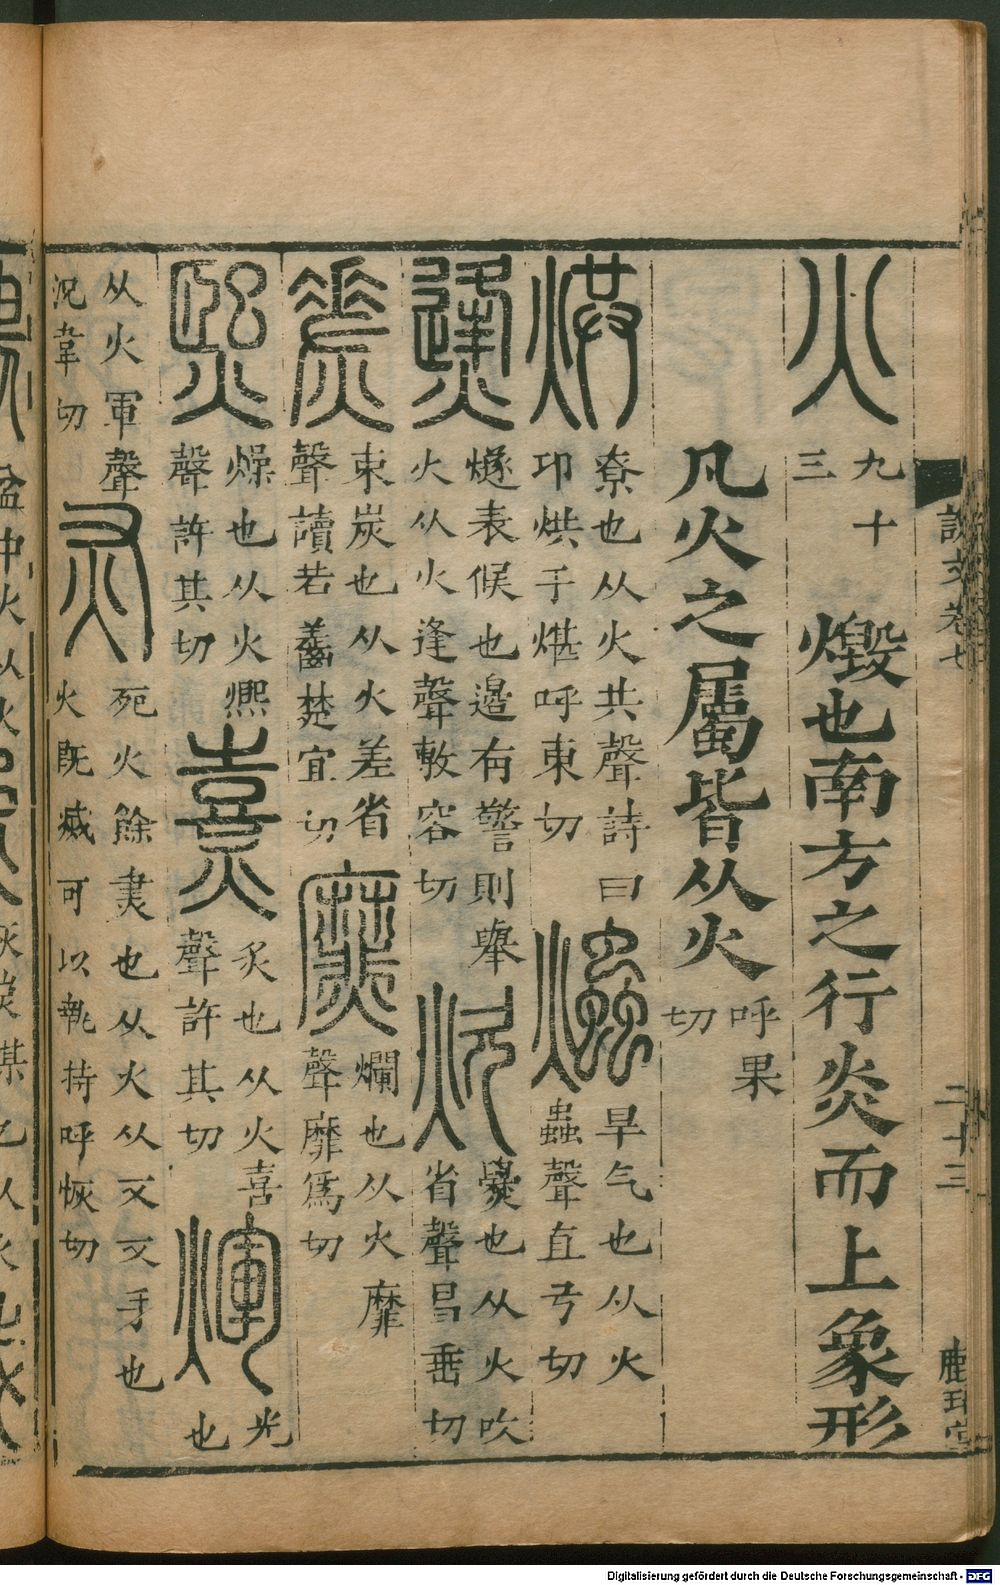 說文卷七 二十三
火 九十三 燬也南方之行炎而上象形
凡火之屬皆从火 呼果切
烘 尞也从火共聲詩曰卬烘于煁呼東切 爞 旱气也从火蟲聲直弓切
㷭 燧表候也邊有警則舉火从火逢聲敷容切 炊 爨也从火吹省聲昌垂切
𤉡 束炭也从火差省聲讀若𪘓楚宜切 爢 爛也从火靡聲靡爲切
熙 燥也从火㶼聲許其切 熹 炙也从火喜聲許其切 煇 光也
从火軍聲況韋切 灰 死火餘㶳也从火从又又手也火旣滅可以執持呼恢切
Digitalisierung gefördert durch die Deutsche Forschungsgemeinschaft - DFG